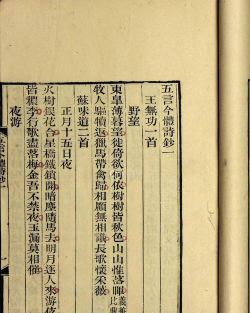 五言今體詩鈔一
王無功一首
野望
東皋薄暮望徙倚欲何依樹樹皆秋色山山惟落暉
牧人驅犢返獵馬帶禽歸相顧無相識長歌懷采薇
蘇味道二首
正月十五日夜
火樹銀花合星橋鐵鎖開暗塵隨馬去明月逐人來游伎
皆穠李行歌盡落梅金吾不禁夜玉漏莫相催
夜游